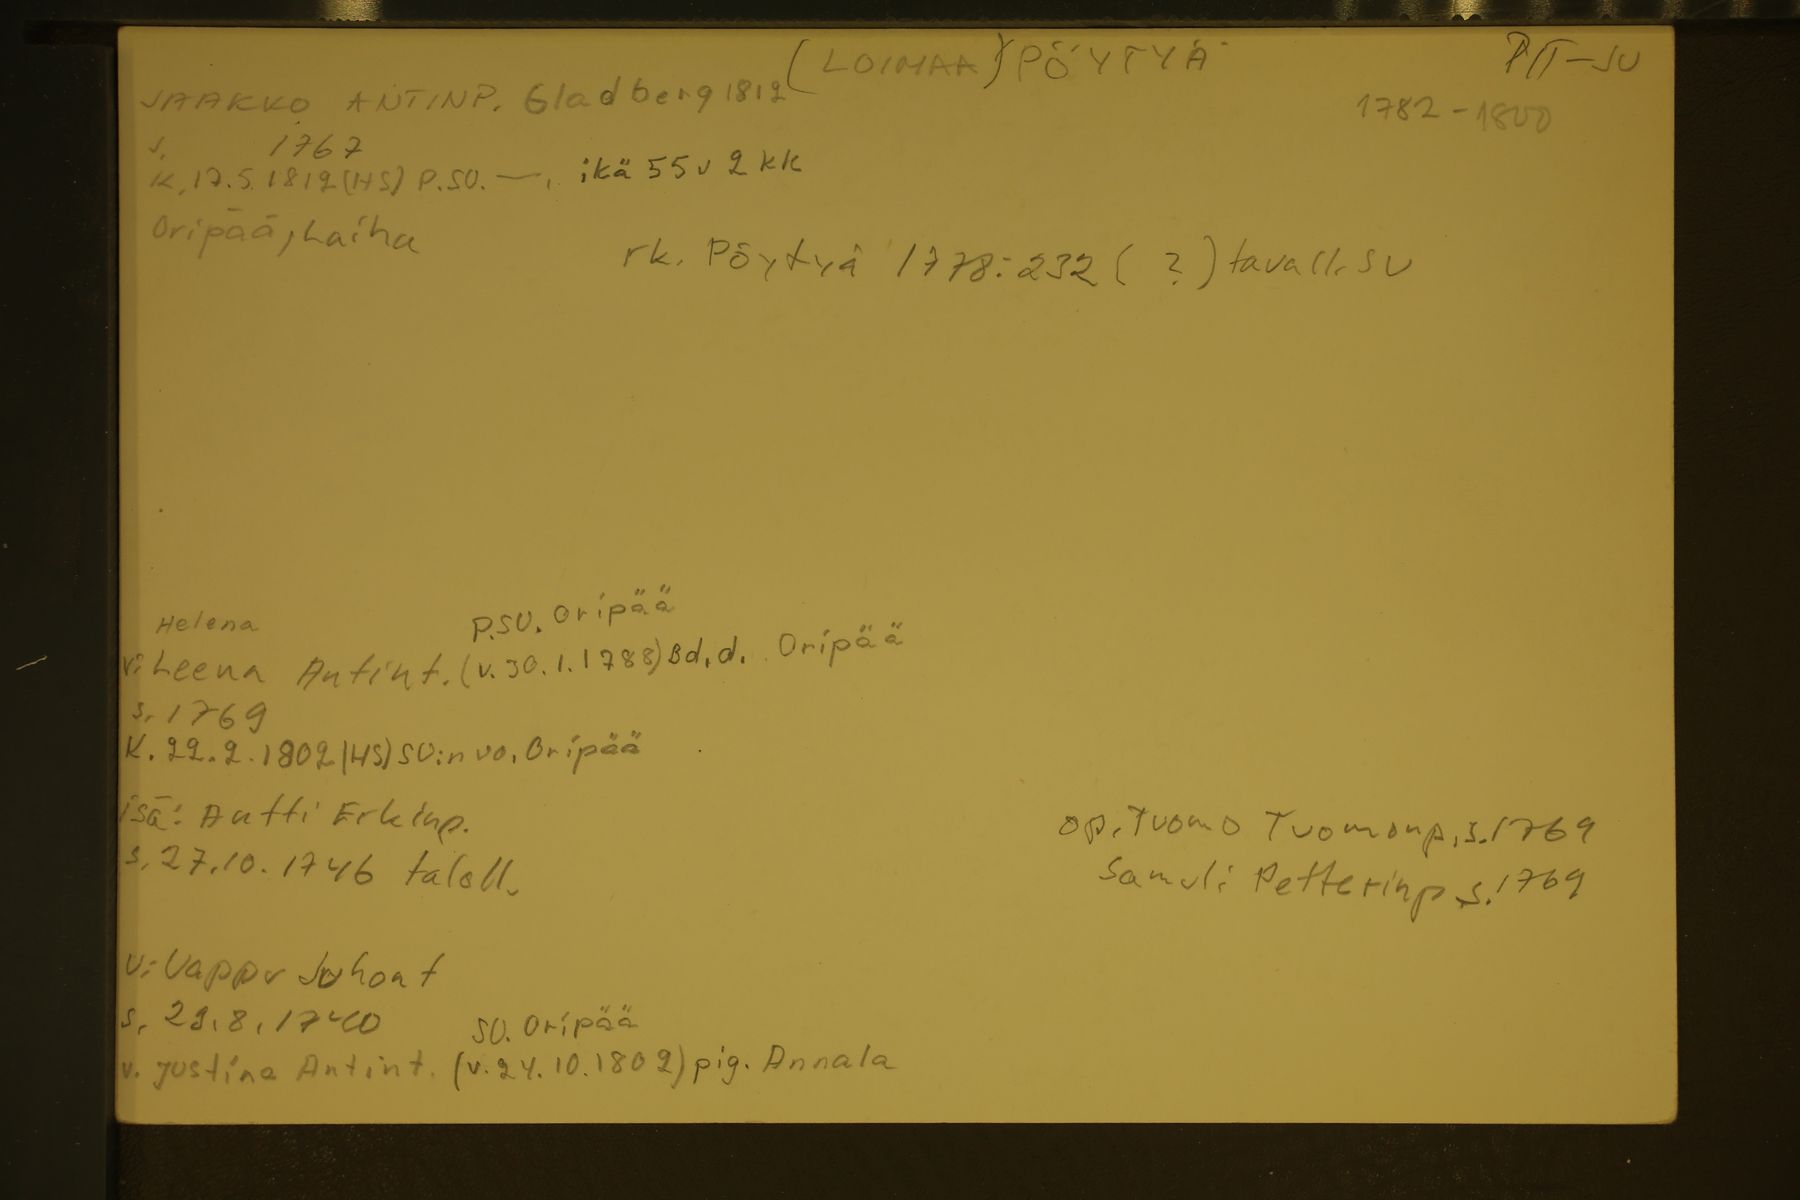 (LOIMAA) PÖYTYÄ PIT-SU
JAAKKO ANTINP. Gladberg 1812 1782-1800
s. 1767
K. 17.5.1812 (HS) P.SU. —, ikä 55 v 2 kk
Oripää, Laiha
rk. Pöytyä 1778:232 ( ? ) tavall. SU
Helena P.SU. Oripää
v: Leena Antint. (v. 30.1.1788) Bd.d. Oripää
s. 1769
K. 22.2.1802 (HS) SU:n vo. Oripää
isä: Antti Erkinp.
s. 27.10.1746 taloll.
op. Tuomo Tuomonp. s. 1769
Samuli Petterinp. s. 1769
v: Vappu Juhont
s. 29.8.1740 SU. Oripää
v. Justina Antint. (v. 24.10.1802) pig. Annala